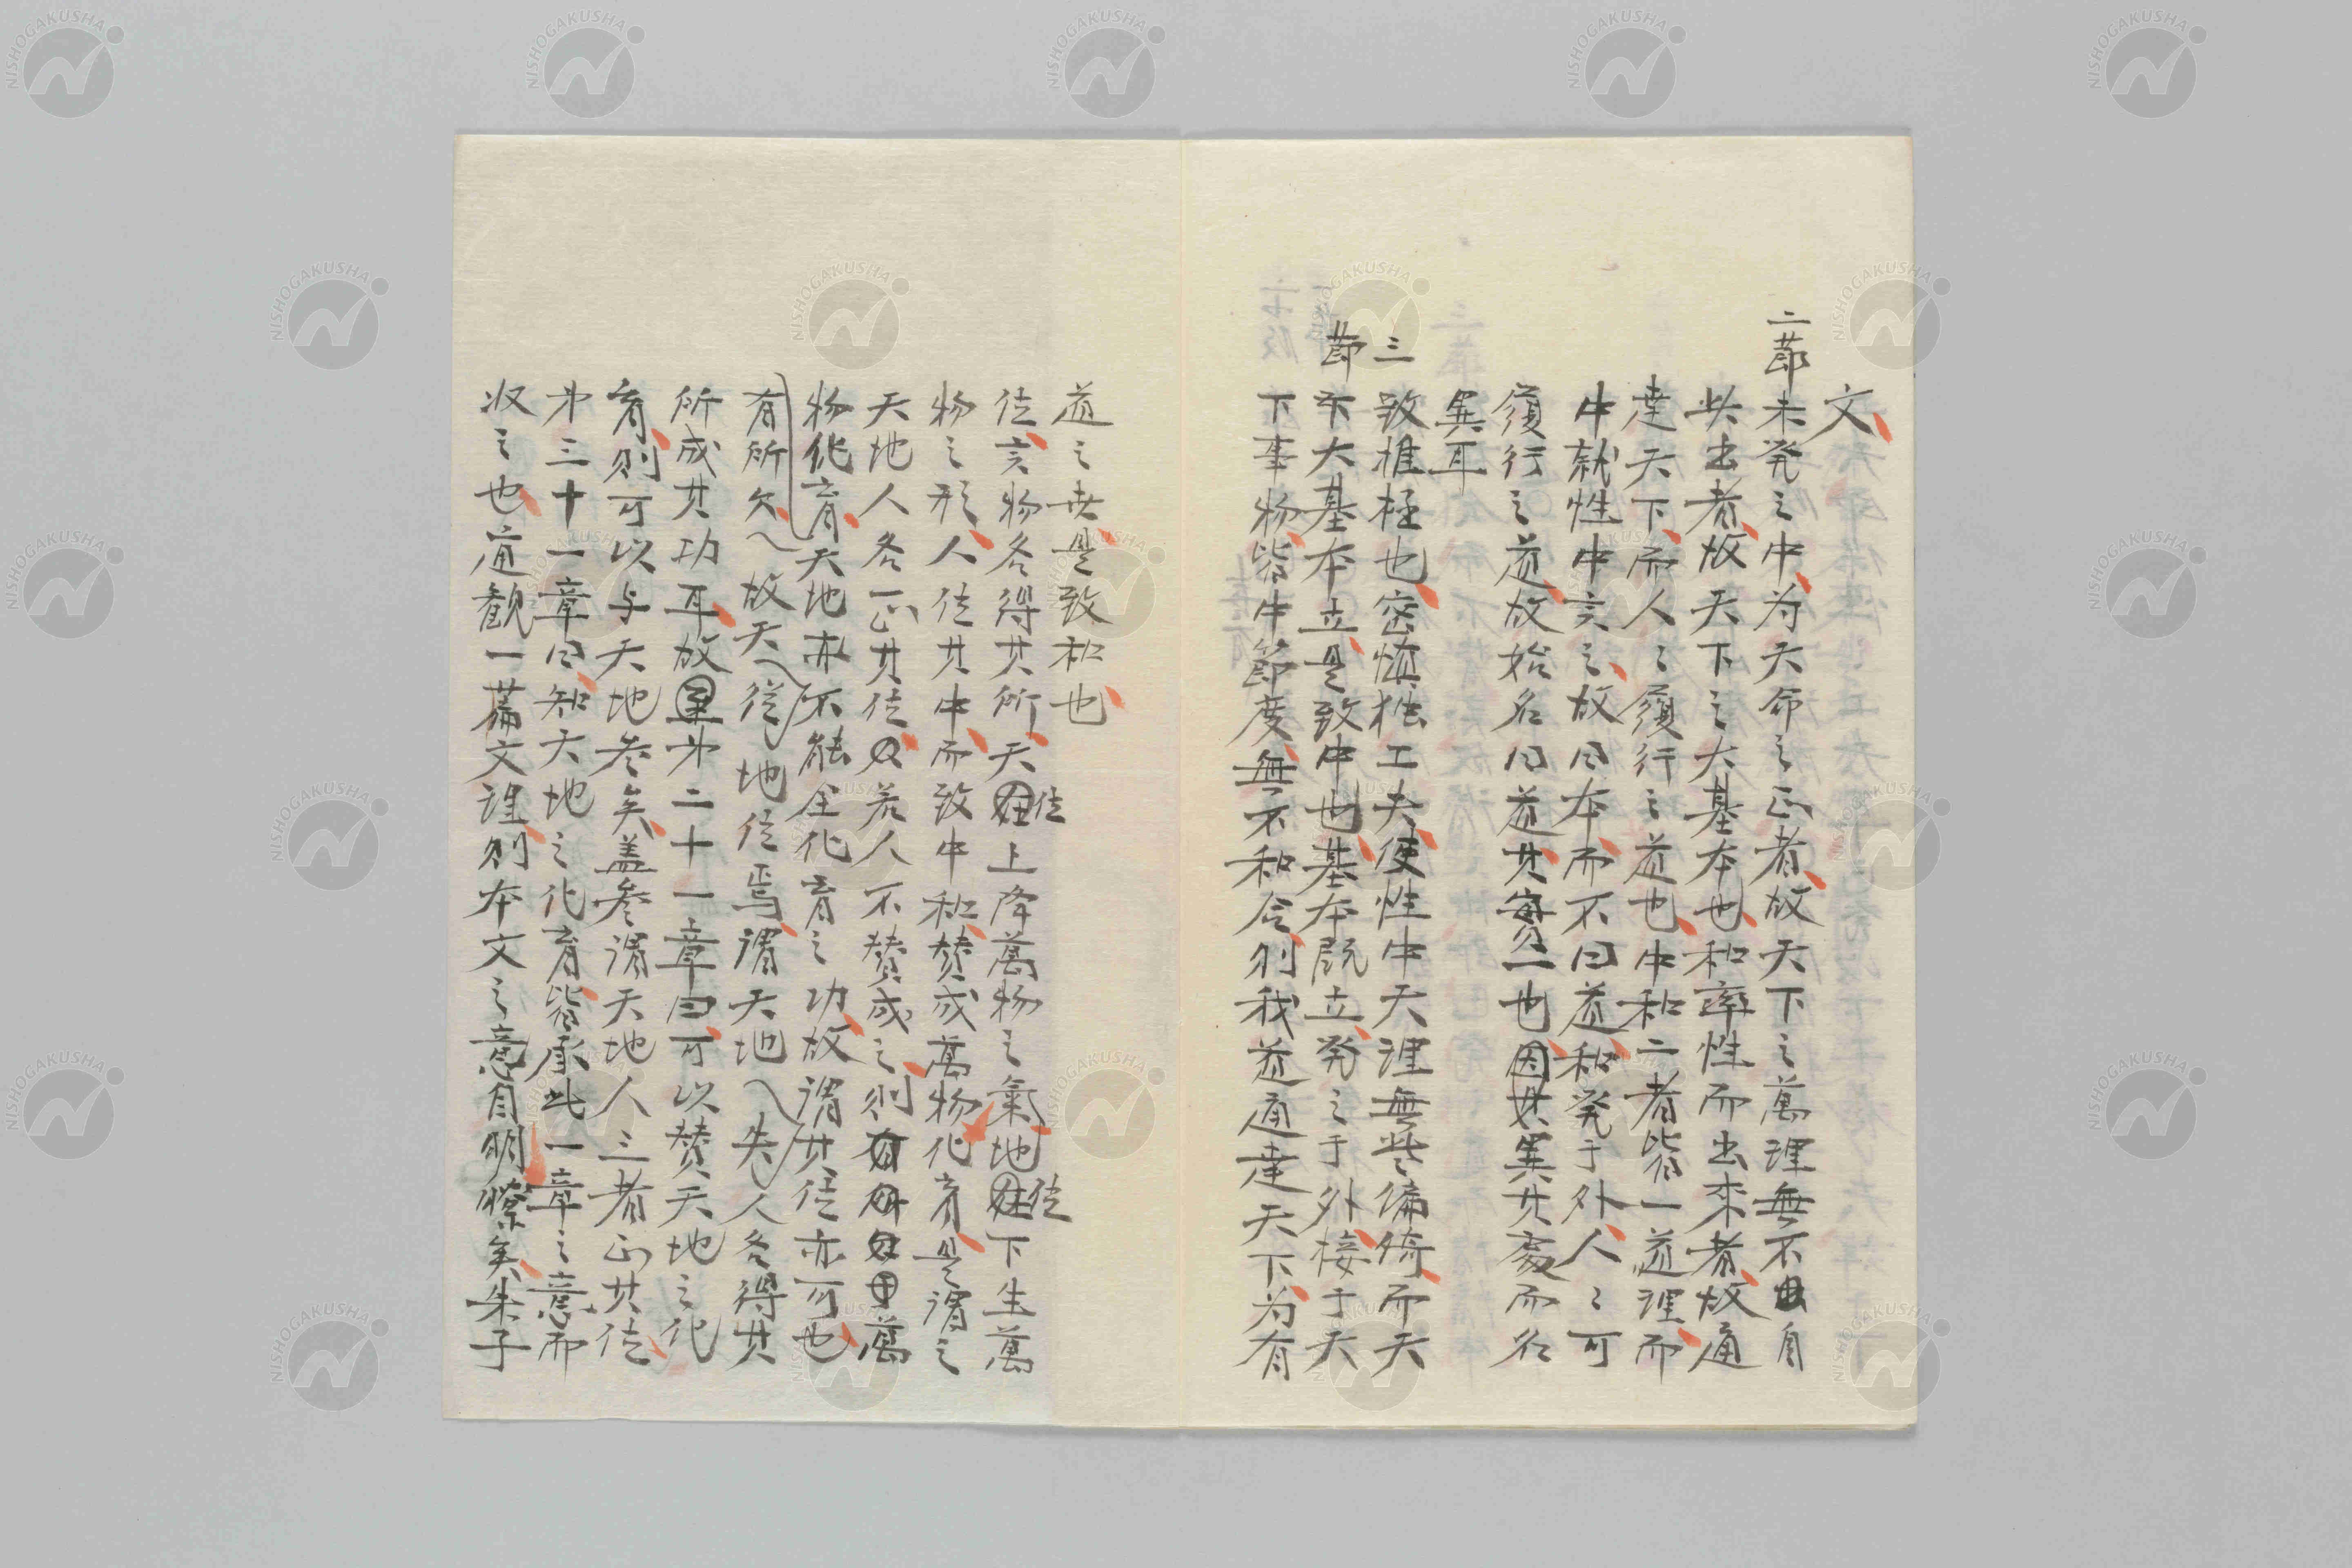 文
二節未発之中為天命之正者故天下之萬理無不由自
此出者故天下之大基本也和率性而出来者故通
達天下而人々須行之道也中和二者皆一道理而
中就性中言之故曰本而不曰道和発于外人々可
須行之道故始名曰道其実一也因其異其変而名
異耳
三節
致推極也密慎独工夫使性中天理無些偏倚而天
下大基本立是致中也基本既立発之于外接于天
下事物皆中節度無不和合則我道通達天下為有
道之世是致和也
位言物各得其所天位上降萬物之氣地位下生萬
物之形人位其中而致中和賛成萬物化育是謂之
天地人各正其位若人不賛成之則萬
物化育天地亦不能全化育之功故謂其位亦可也
有所欠故天従地位焉謂天地失人各得其
所成其功耳故第二十一章曰可以賛天地之化
育則可以与天地参矣蓋参謂天地人三者正其位
第三十一章曰知天地之化育皆承此一章之意而
収之也通観一篇文理則本文之意自明瞭矣朱子
NISHOGAKUSHA